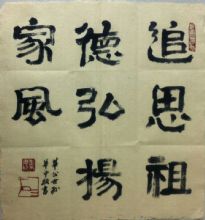 追思祖
德弘揚
家風